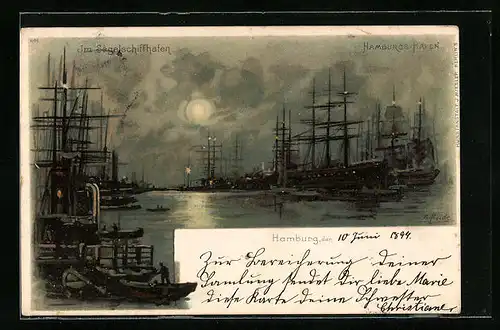 Im Segelschiffhafen
HAMBURGS HAFEN
Hamburg, den 10 Juni 1899.
Zur Bereicherung deiner
Samlung sendet Dir, liebe Marie
diese Karte deine Schwester
Christiane